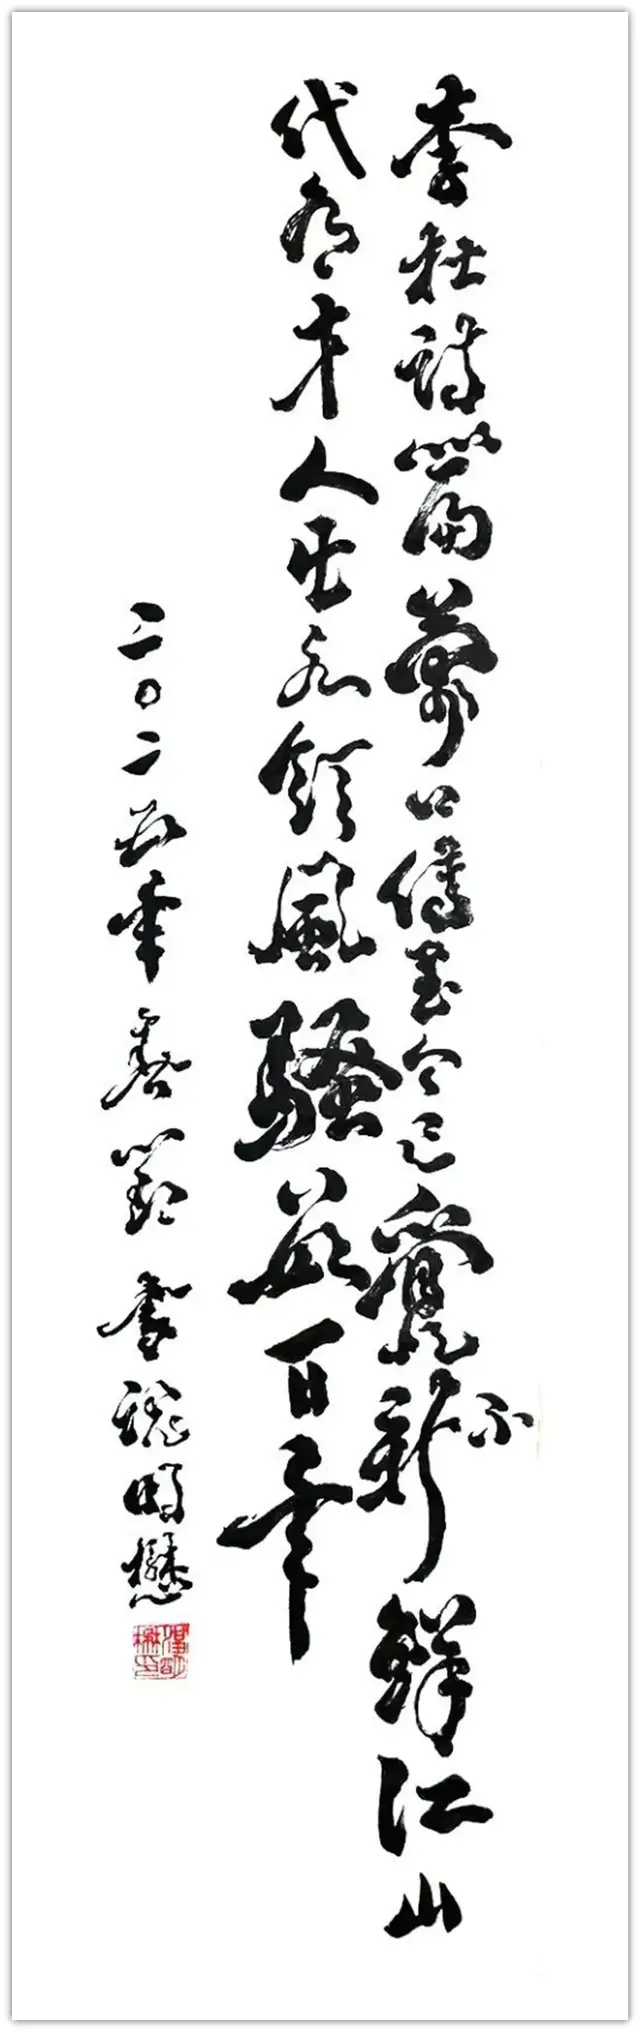 李杜詩篇萬口傳至今已覺不新鮮江山
代有才人出各領風騷數百年
二〇二年書時懋